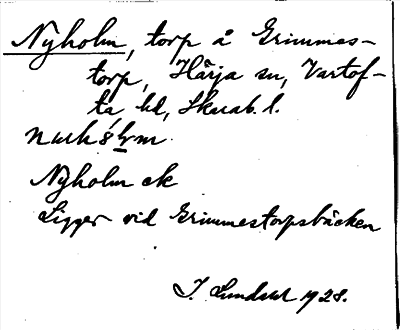 Nyholm, torp å Grimmes-
torp, Härja sn, Vartof-
ta hd, Skarab. l.
Nyholm ek
Ligger vid Grimmestorpsbäcken
J. Lundahl 1928.